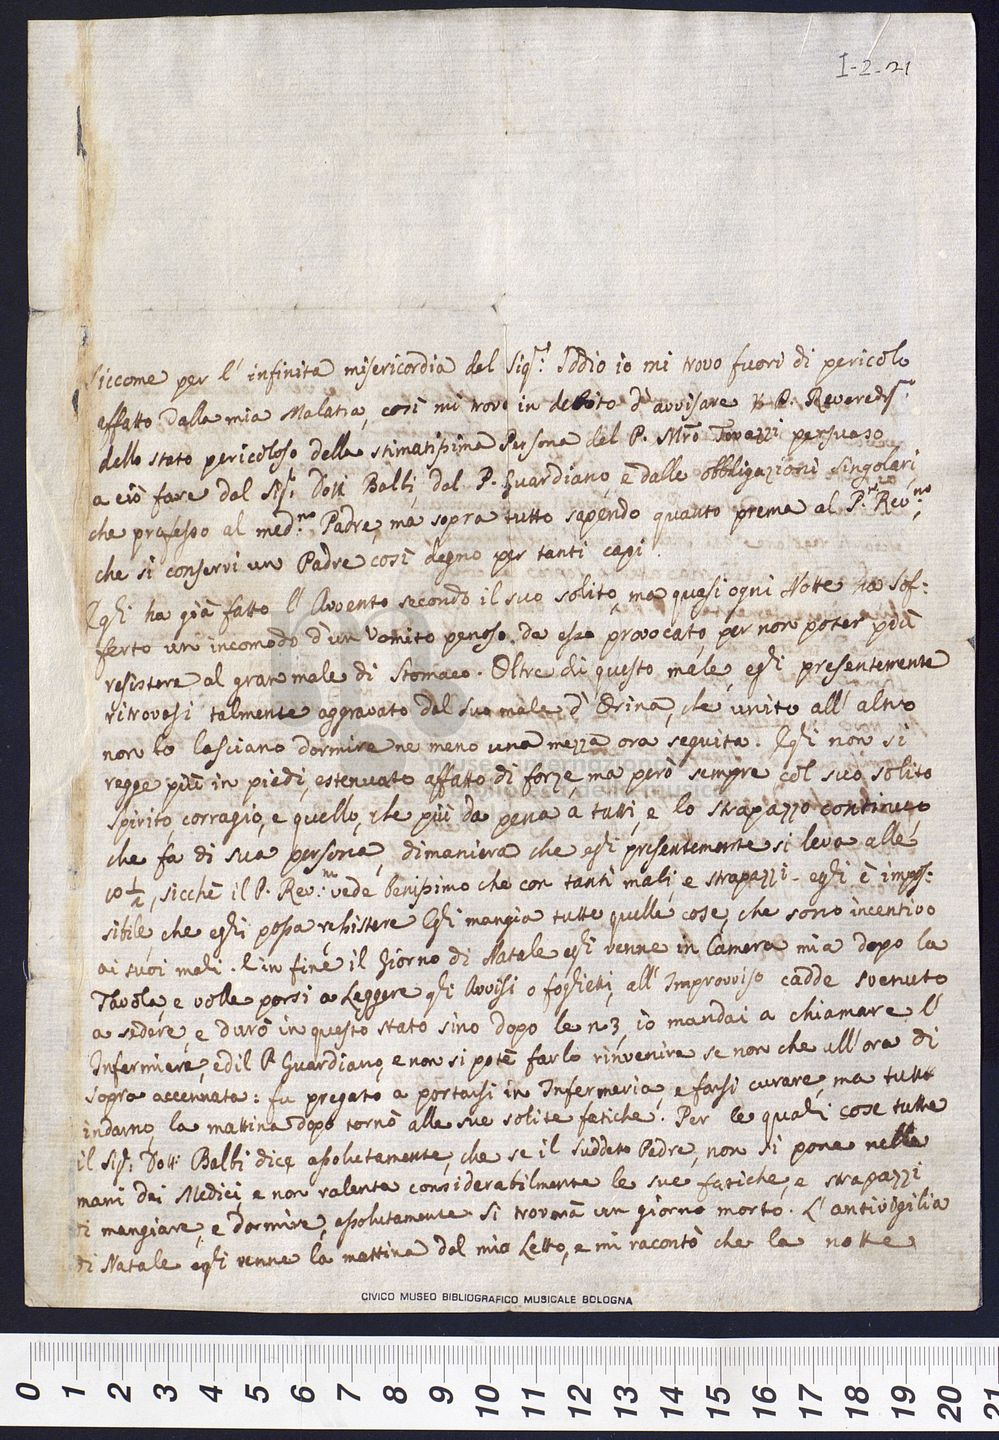 I-2-21
Siccome per l' infinita misericordia del Sig.r Iddio io mi trovo fuori di pericolo
affatto dalla mia Malatia, così mi trovo in debito d' avvisare P. Reverediss.
dello stato pericoloso della stimatissima Persona del P. Mrõ Tovazzi persuaso
a ciò fare dal Sig.r Dott. Balbi, dal P. Guardiano, e dalle obbligazioni singolari,
che professo al med.mo Padre, ma sopra tutto sapendo quanto prema al P.re Rev.mo
che si conservi un Padre così degno per tanti capi.
Egli ha già fatto l' Avvento secondo il suo solito, ma quasi ogni Notte ha sof:
ferto un incomodo d' un Vomito penoso da esso provocato, per non poter più
resistere al gran male di Stomaco. Oltre di questo male, egli presentemente
ritrovasi talmente aggravato dal suo male d' Orina, che unito all' altro
non lo lasciano dormire ne meno una mezza ora seguita. Egli non si
regge più in piedi, estenuato affatto di forze, ma però sempre col suo solito
spirito, corragio, e quello, che più da pena a tutti, e lo strapazzo continuo
che fa di sua persona, dimaniera che egli presentemente si leva alle
10 1/2, sicchè il P. Rev.mo vede benissimo che con tanti mali, e strapazzi egli è impos:
sibile che egli possa resistere Egli mangia tutte quelle cose, che sono incentivo
ai suoi mali. E in fine il Giorno di Natale egli venne in Camera mia dopo la
Tavola, e volle porsi a Leggere gli Avvisi o foglietti, all' Improvviso cadde svenuto
a sedere, e durò in questo stato sino dopo le n3, io mandai a chiamare l'
Infermiere, ed il P. Guardiano, e non si potè farlo rinvenire se non che all' ora di
sopra accennata: fu pregato a portarsi in Infermeria, e farsi curare, ma tutto
indarno, la mattina dopo tornò alle sue solite fatiche. Per le quali cose tutte
il Sig.r Dott. Balbi dice assolutamente, che se il suddetto Padre, non si pone nelle
mani dei Medici, e non ralenta considerabilmente le sue fatiche, e strapazzi
di mangiare, e dormire, assolutamente si troverà un giorno morto. L' antivigilia
di Natale egli venne la mattina dal mio Letto, e mi raccontò che la notte
CIVICO MUSEO BIBLIOGRAFICO MUSICALE BOLOGNA
museo internazionale
e biblioteca della musica
0 1 2 3 4 5 6 7 8 9 10 11 12 13 14 15 16 17 18 19 20 21